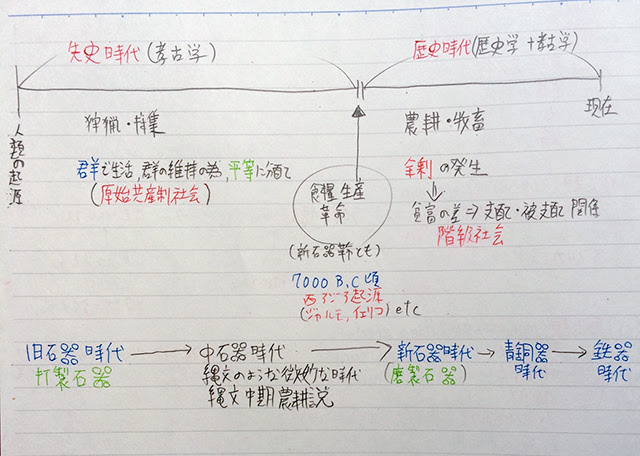 先史時代(考古学)
歴史時代(歴史学+考古学)
人類の起源
現在
狩猟・採集
農耕・牧畜
群で生活,群の維持の為,平等に分配
(原始共産制社会)
余剰の発生
貧富の差⇒支配・被支配関係
階級社会
食糧生産
革命
(新石器革命とも)
7000 B.C頃
西アジア起源
(ジャルモ,イェリコ) etc
旧石器時代
打製石器
中石器時代
縄文のような微妙な時代
縄文中期農耕説
新石器時代
(磨製石器)
青銅器
時代
鉄器
時代